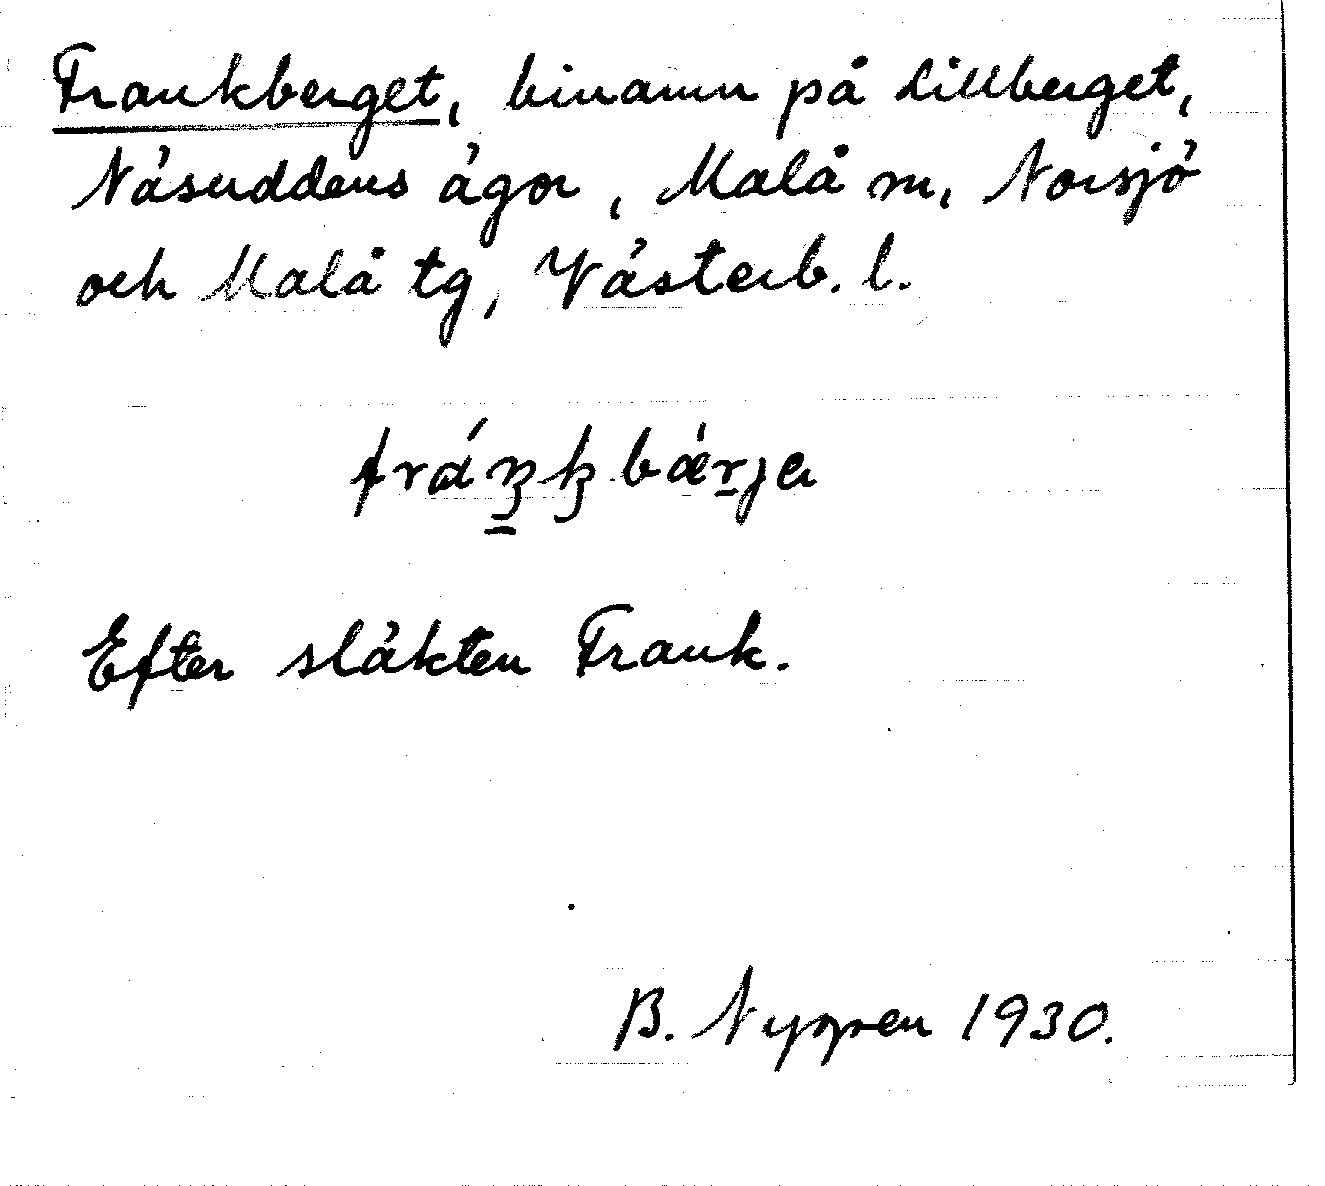 Frankberget, binamn på Lillberget,
Näsuddens ägor, Malå m, Norsjö
och Malå tg, Västerb. l.
Efter släkten Frank.
B. Nyppen 1930.